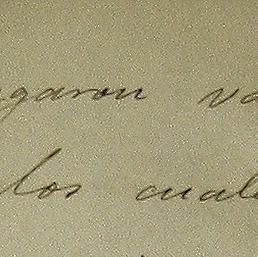 garon va
los cuale